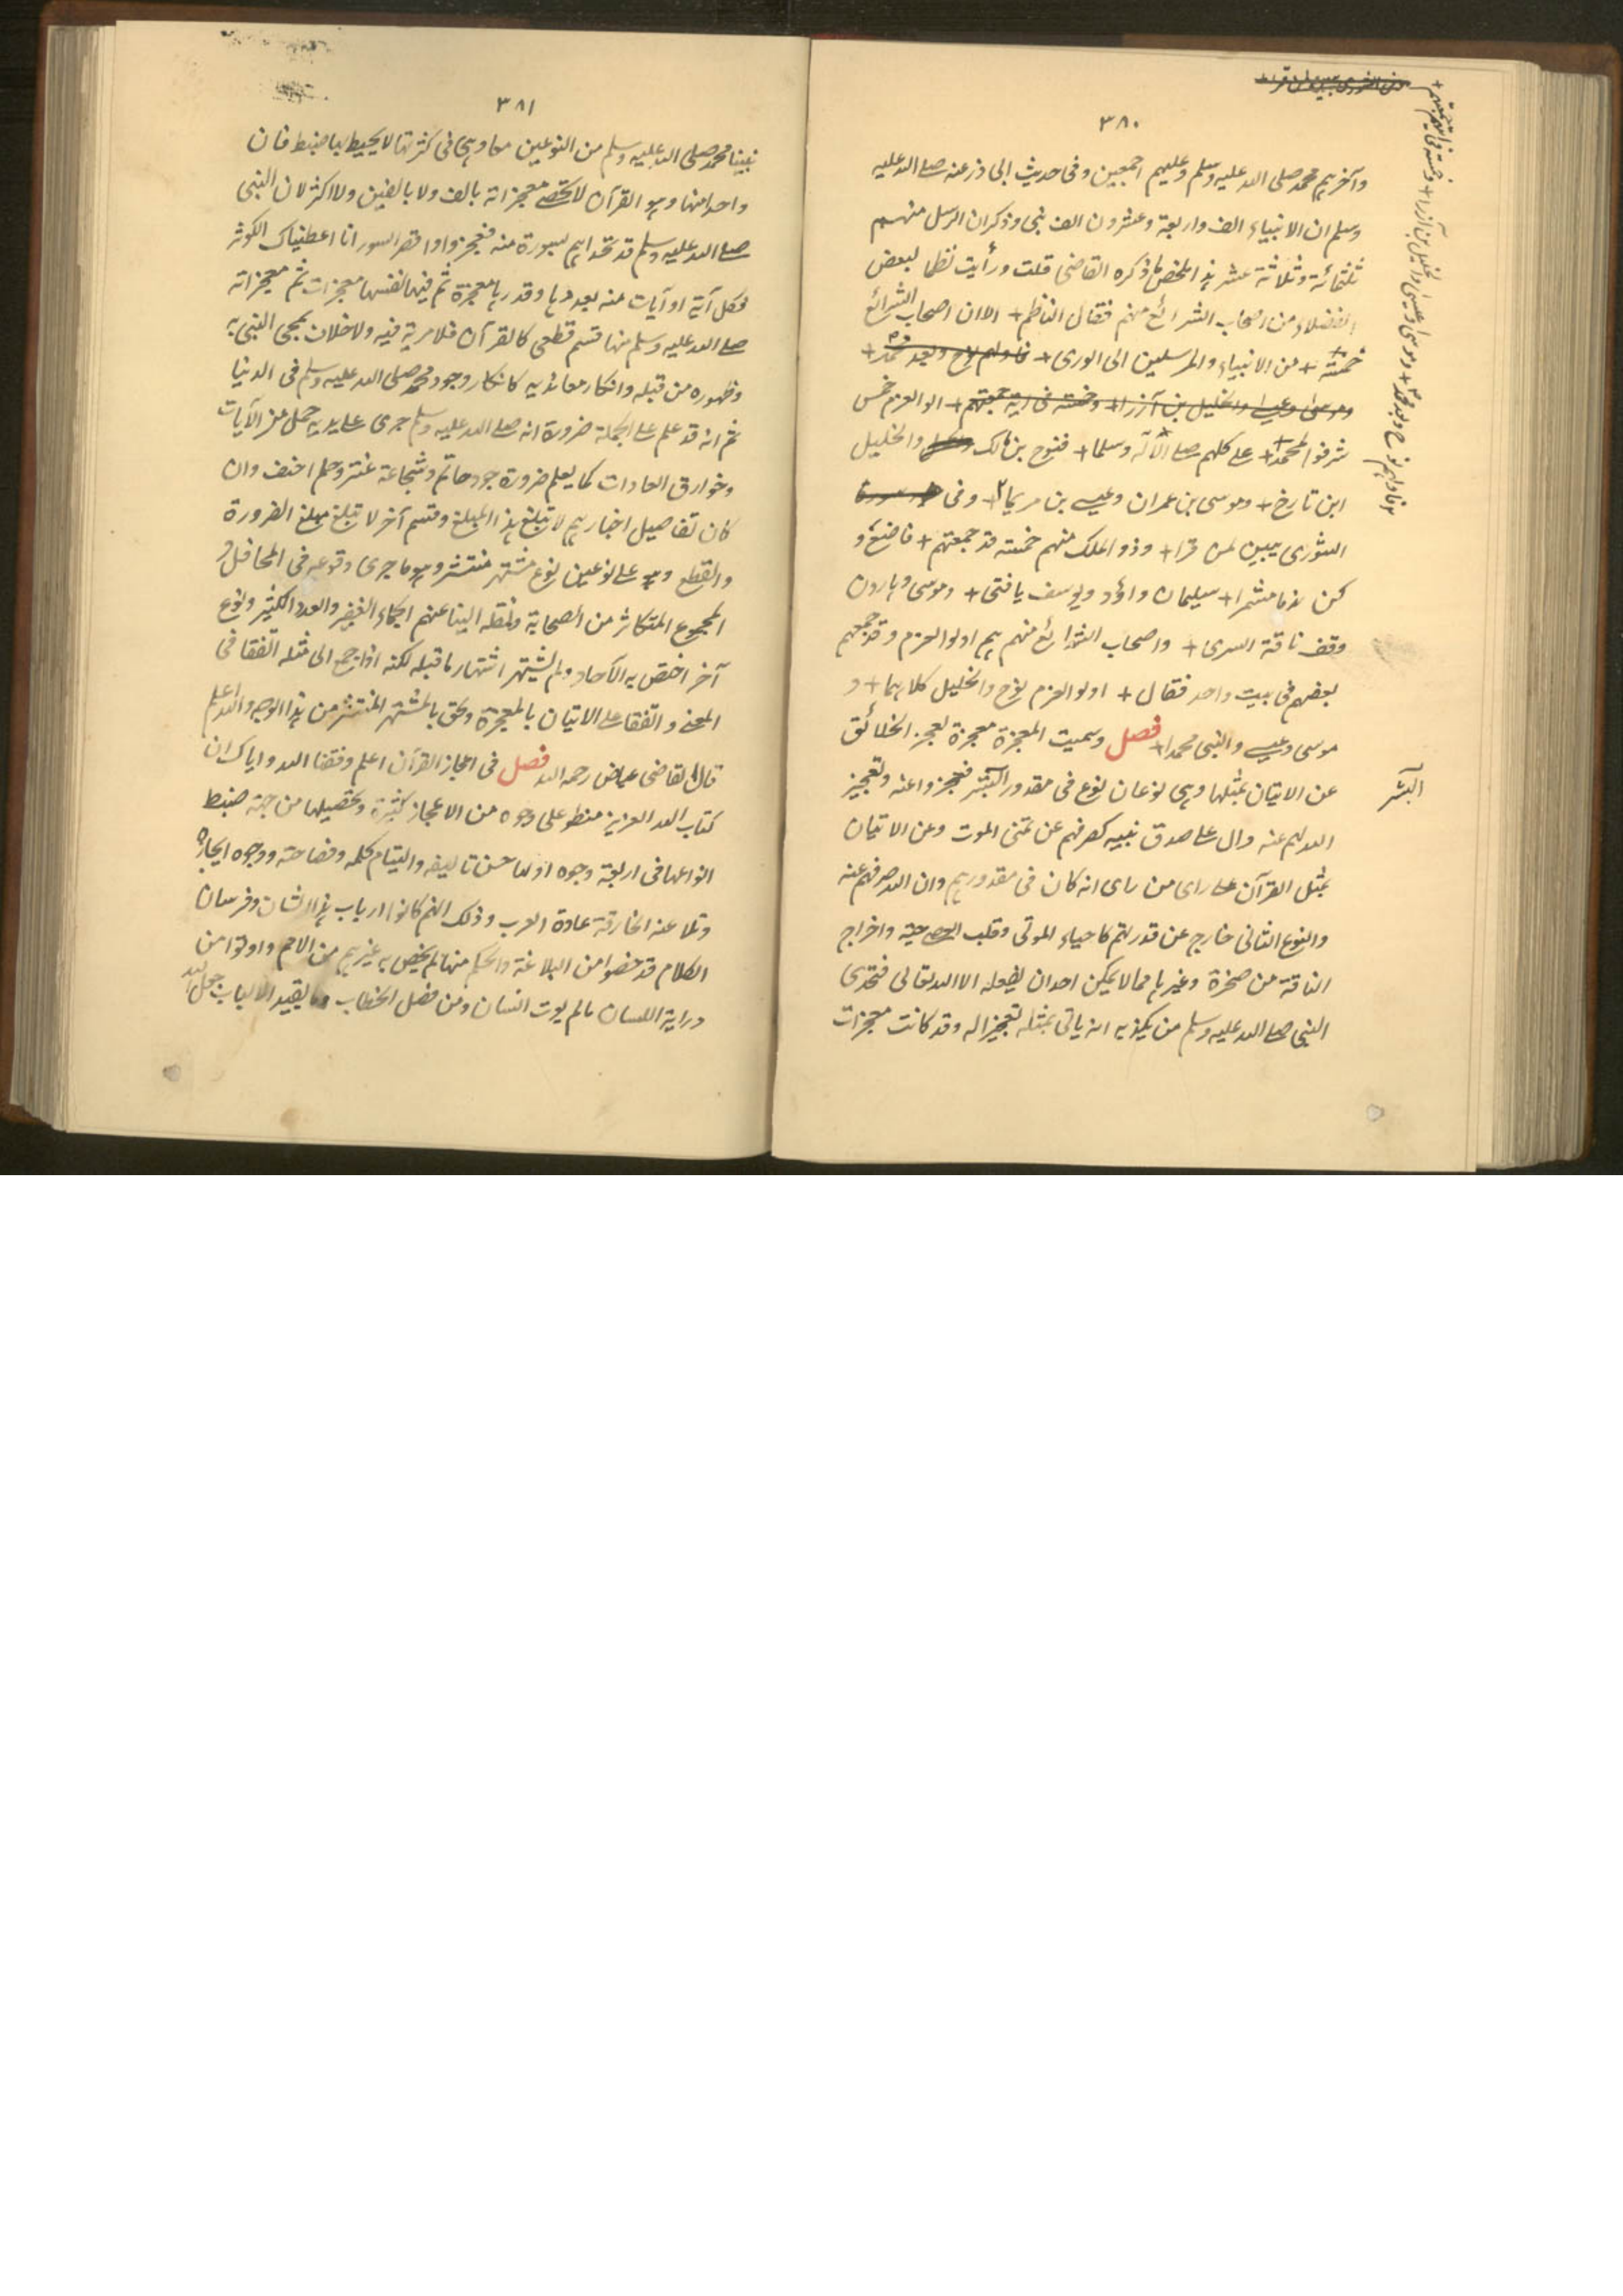 ٣٨٠
وآخرهم محمد صلى الله عليه وسلم وعليهم اجمعين وفى حديث ابى ذر عنه صلى الله عليه
وسلم ان الانبياء الف واربعة وعشرون الف نبى وذكر ان الرسل منهم
ثلثمائة وثلاثة عشر هذا ملخص ما ذكره القاضى قلت ورأيت نظما لبعض
الفضلاء من اصحاب الشرائع منهم فقال الناظم + الا ان اصحاب الشرائع
خمسة + من الانبياء والمرسلين الى الورى + فاولهم نوح وبعد محمد +
وموسى وعيسى والخليل بن آزرا + وخمسة فى اية جمعتهم + الو العزم خمس
شرفوا بمحمد + على كلهم صلى الاله وسلما + فنوح بن مالك والخليل
ابن تارخ + وموسى بن عمران وعيسى بن مريما + وفى
الشورى يبين لمن قرا + وذو الملك منهم خمسة قد جمعتهم + فاصغ و
كن لذا مشمرا + سليمان داؤد ويوسف يا فتى + وموسى وهارون
وقف ناقة السرى + واصحاب الشرائع منهم هم اولو العزم وقد جمعهم
بعضهم فى بيت واحد فقال + اولو العزم نوح والخليل كلاهما + و
موسى وعيسى والنبى محمدا + فصل وسميت المعجزة معجزة لعجز الخلائق
عن الاتيان بمثلها وهى نوعان نوع فى مقدور البشر فعجزوا عنه وتعجيز
الله لهم عنه دال على صدق نبيه كصرفهم عن تمنى الموت وعن الاتيان
بمثل القرآن على راى من راى انه كان فى مقدورهم وان الله صرفهم عنه
والنوع الثانى خارج عن قدرتهم كاحياء الموتى وقلب العصا حية واخراج
الناقة من صخرة وغيرها مما لا يمكن احدا ان يفعله الا الله تعالى فتحدى
النبى صلى الله عليه وسلم من يكذبه ان ياتى بمثله تعجيزا له وقد كانت معجزات
البشر
فاولهم نوح وبعد محمد + وموسى وعيسى والخليل بن آزرا + وخمسة فى اية جمعتهم +
٣٨١
نبينا محمد صلى الله عليه وسلم من النوعين معا وهى فى كثرتها لا يحيط بها ضبط فان
واحدا منها وهو القرآن لا تحصى معجزاته بالف ولا بالفين ولا اكثر لان النبى
صلى الله عليه وسلم قد تحداهم بسورة منه فعجزوا واقصر السور انا اعطيناك الكوثر
فكل آية او آيات منه بعددها وقدرها معجزة ثم فيها نفسها معجزات ثم معجزاته
صلى الله عليه وسلم منها قسم قطعى كالقرآن فلا مرية فيه ولا خلاف بمجى النبى به
وظهوره من قبله وانكار معانديه كانكار وجود محمد صلى الله عليه وسلم فى الدنيا
ثم انه قد علم على الجملة ضرورة انه صلى الله عليه وسلم جرى على يديه جمل من الآيات
وخوارق العادات كما يعلم ضرورة جود حاتم وشجاعة عنتر وحلم احنف وان
كان تفاصيل اخبارهم لا تبلغ هذا المبلغ وقسم آخر لا تبلغ مبلغ الضرورة
والقطع وهو على نوعين نوع مشتهر منتشر وهو ما جرى وقوعه فى المحافل و
الجموع المتكاثر من الصحابة ونقله الينا عنهم الجماء الغفير والعدد الكثير ونوع
آخر اختص به الآحاد ولم يشتهر اشتهار ما قبله لكنه اذا جمع الى مثله اتفقا فى
المعنى واتفقا على الاتيان بالمعجزة ولحق بالمشتهر المنتشر من هذا الوجه والله اعلم
قال القاضى عياض رحمه الله فصل فى اعجاز القرآن اعلم وفقنا الله واياك ان
كتاب الله العزيز منطو على وجوه من الاعجاز كثيرة وتحصيلها من جهة ضبط
انواعها فى اربعة وجوه اولها حسن تاليفه والتيام كلمه وفصاحته ووجوه ايجازه
وبلاغته الخارقة عادة العرب وذلك انهم كانوا ارباب هذا الشان وفرسان
الكلام قد خصوا من البلاغة والحكم منها لم يخص به غيرهم من الامم واوتوا من
دراية اللسان ما لم يوت انسان ومن فصل الخطاب ما يقيد الالباب جعل الله